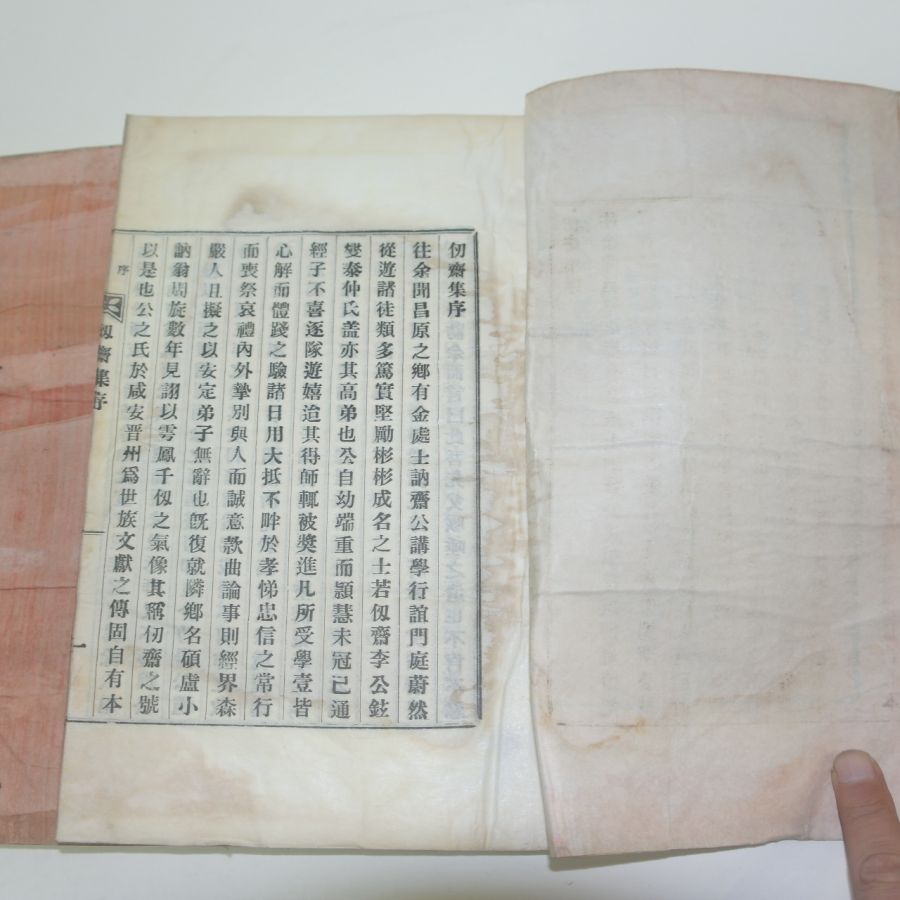 仞齋集序
往余聞昌原之鄉有金處士訥齋公講學行誼門庭蔚然
從遊諸徒類多篤實堅勵彬彬成名之士若仭齋李公鉉
燮泰仲氏蓋亦其高弟也公自幼端重而頴慧未冠已通
經子不喜逐隊遊嬉迨其得師輒被奬進凡所受學壹皆
心解而體踐之驗諸日用大抵不畔於孝悌忠信之常行
而喪祭哀禮內外摯別與人而誠意款曲論事則經界森
嚴人且擬之以安定弟子無辭也旣復就隣鄉名碩盧小
訥翁周旋數年見詡以雩鳳千仭之氣像其稱仞齋之號
以是也公之氏於咸安晋州爲世族文獻之傳固自有本
仭齋集序
序
一